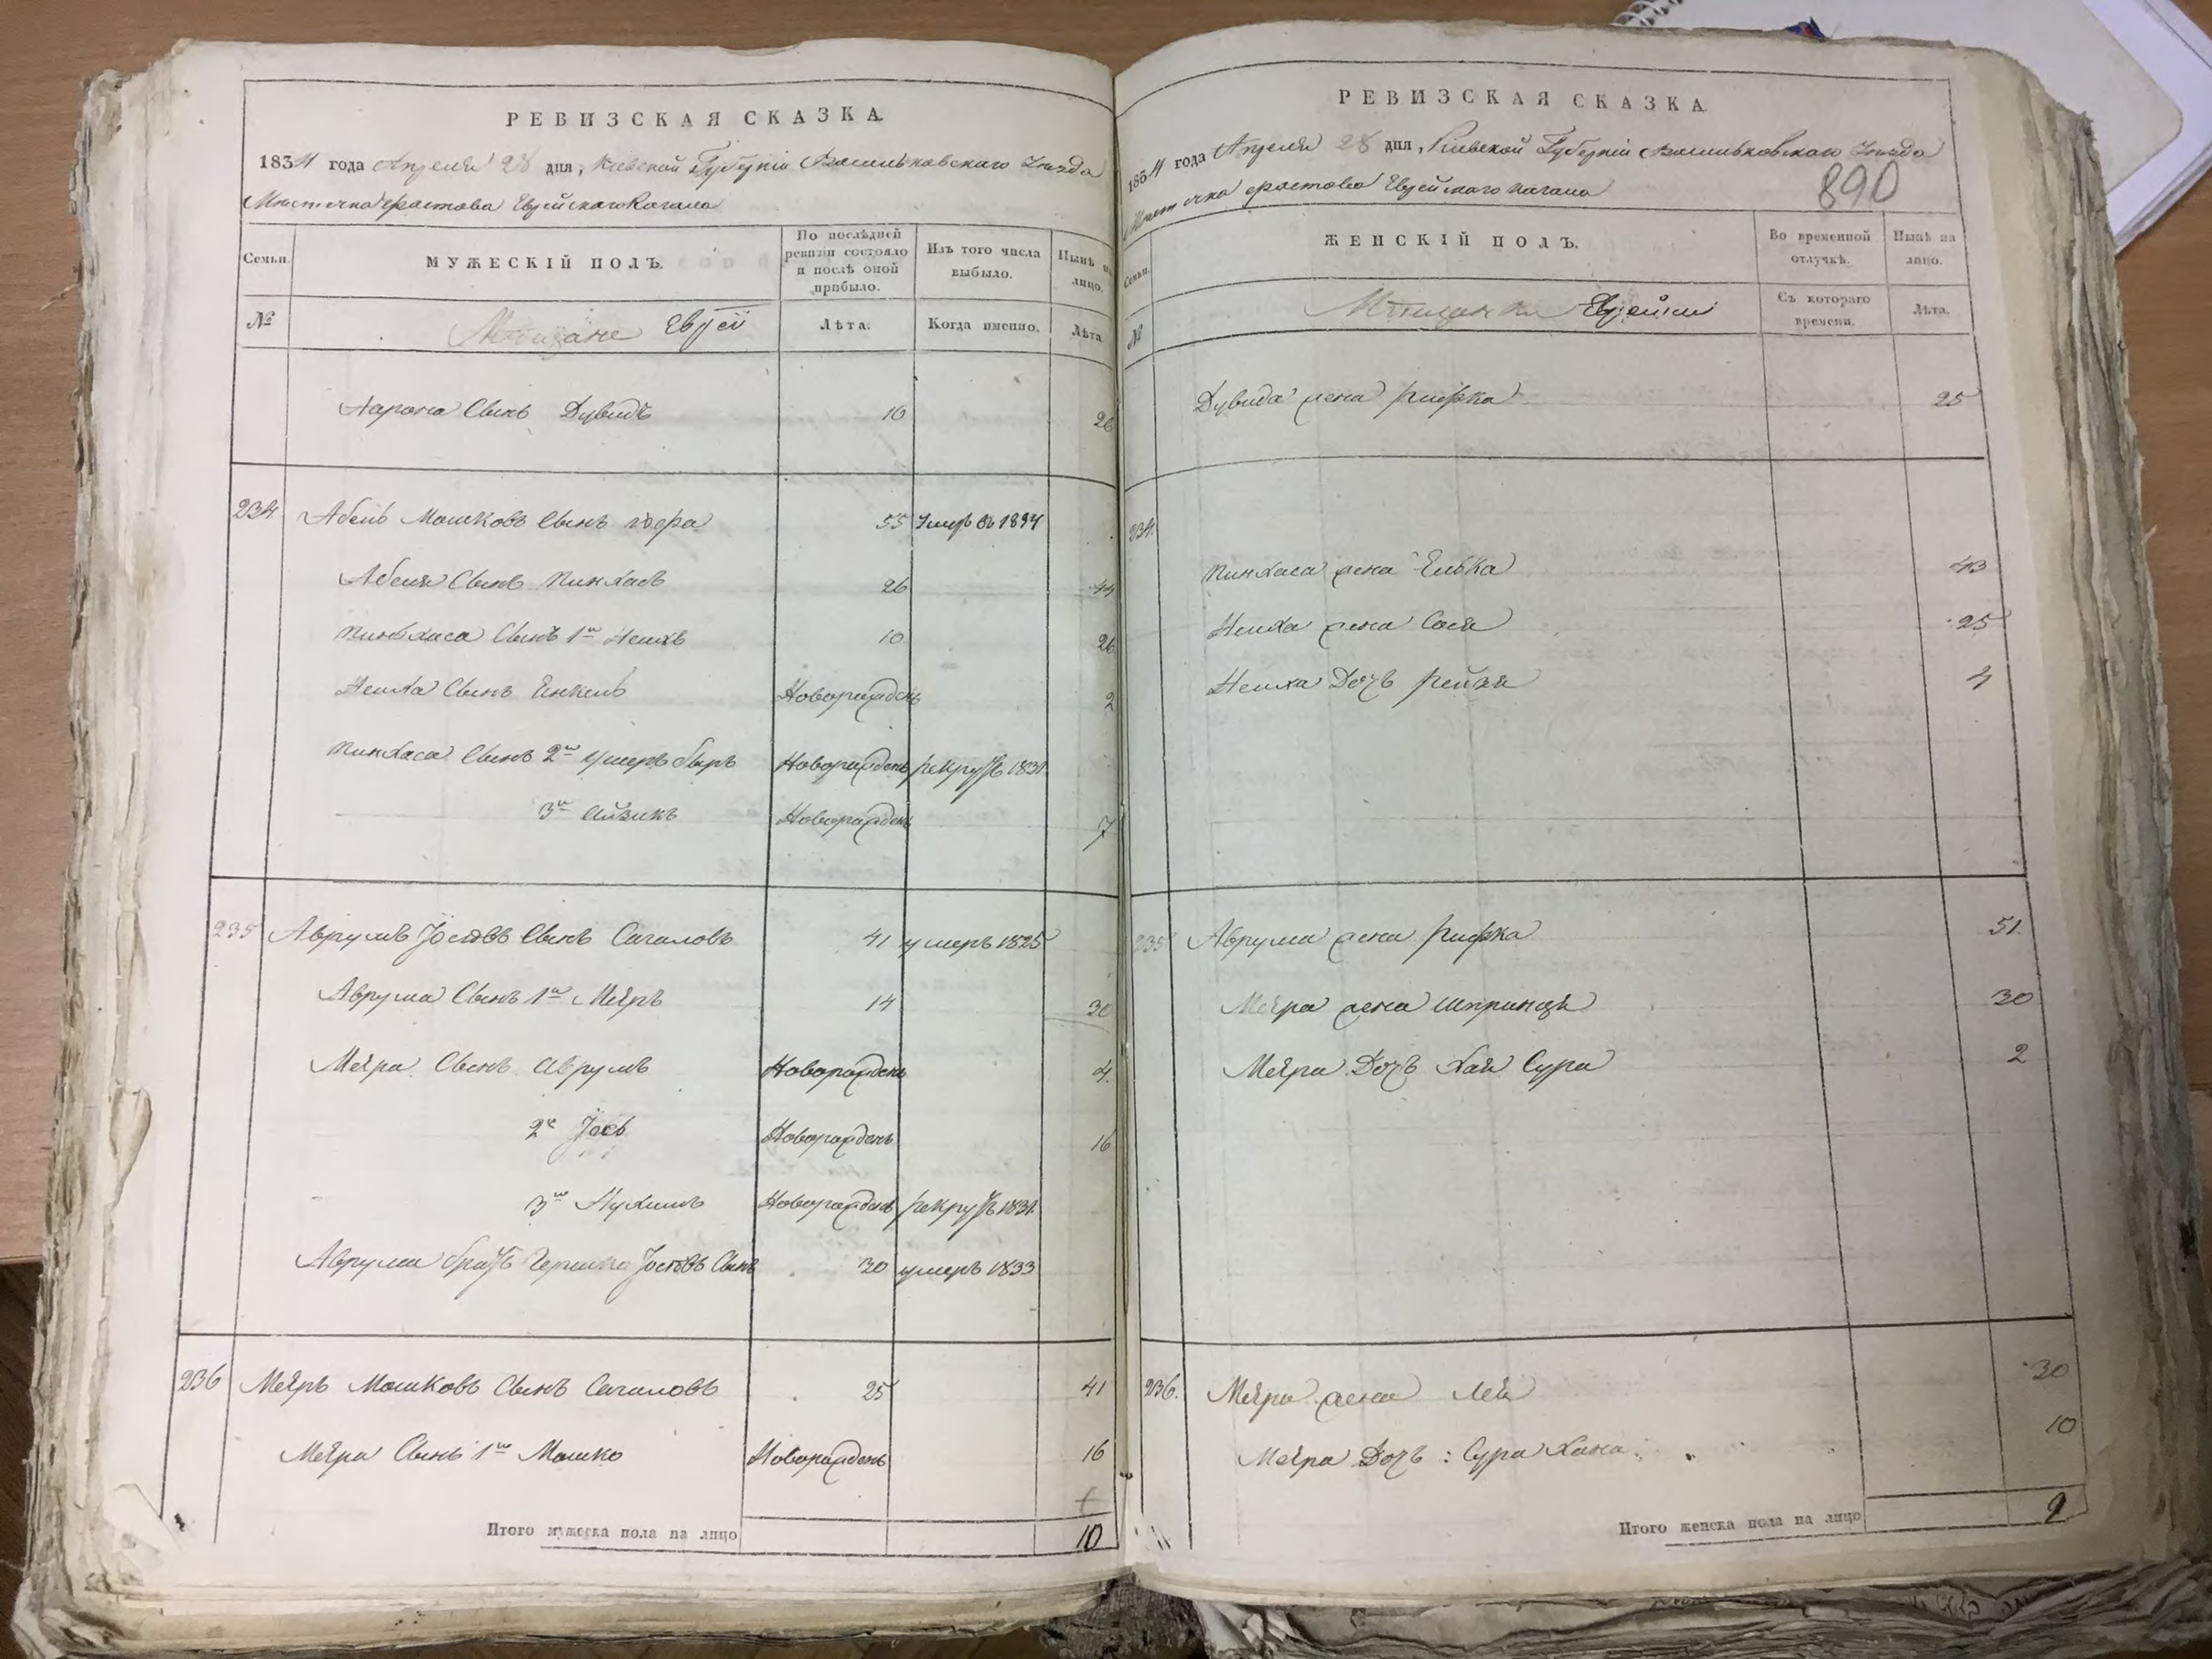 РЕВИЗСКАЯ СКАЗКА
1834 года Апреля 28 дня, Киевской Губерніи Васильковскаго Уезда
Местечка Фастова Еврейскаго Кагала
Семьи.
МУЖЕСКІЙ ПОЛЪ.
По послѣдней ревизіи состояло и послѣ оной прибыло.
Изъ того числа выбыло.
Нынѣ на лицо.
№
Мѣщане Евреи
Лѣта.
Когда именно.
Лѣта
Аарона Сынъ Дувидъ 10 26
234 Абель Мошковъ Сынъ 55 Умеръ въ 1834
Абеля Сынъ Пинхасъ 26 44
Пинхаса Сынъ 1й 10 26
Сынъ Янкель Новорожденъ 2
Пинхаса Сынъ 2й Умеръ Новорожденъ рекрутъ 1831
3й Айзикъ Новорожденъ 7
235 Аврумъ Іосіовъ Сынъ Сагаловъ 41 умеръ 1825
Аврума Сынъ 1й Меяръ 14 30
Меяра Сынъ Аврумъ Новорожденъ 4
2й Іось Новорожденъ 16
3й Нухимъ Новорожденъ рекрутъ 1831
Аврума братъ Гершко Іосіовъ Сынъ 30 умеръ 1833
236 Меяръ Мошковъ Сынъ Сагаловъ 25 41
Меяра Сынъ 1й Мошко Новорожденъ 16
Итого мужеска пола на лицо 10
РЕВИЗСКАЯ СКАЗКА
1834 года Апреля 28 дня, Киевской Губерніи Васильковскаго Уезда
Местечка Фастова Еврейскаго Кагала
890
Семьи.
ЖЕНСКІЙ ПОЛЪ.
Во временной отлучкѣ.
Нынѣ на лицо.
№
Мѣщанки Еврейки
Съ котораго времени.
Лѣта.
Дувида жена Рифка 25
234.
Пинхаса жена Елька 43
жена Сося 25
Дочь Рейзя 4
235 Аврума жена Рифка 51.
Меяра жена Шпринця 30
Меяра Дочь Хая Сура 2
236. Меяра жена Лея 30
Меяра Дочь: Сура Хана 10
Итого женска пола на лицо 9